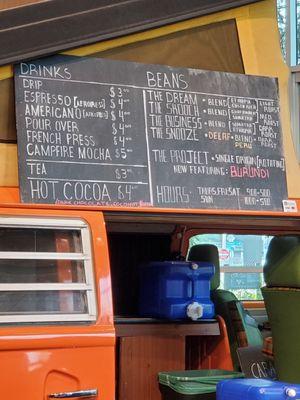 DRINKS
DRIP $3.00
ESPRESSO [AEROPRESS] $4
AMERICANO [AEROPRESS] $4
POUR OVER $4
FRENCH PRESS $4
CAMPFIRE MOCHA $5
TEA $3
HOT COCOA 6.4
BEANS
THE DREAM - BLEND LIGHT ROAST
THE SADDLE - BLEND MED ROAST
THE BUSINESS - BLEND DARK ROAST
THE SNOOZE - DECAF - BLEND
PERU
THE PROJECT - SINGLE ORIGIN [ROTATING]
NOW FEATURING: BURUNDI
HOURS: THURS, FRI, SAT 9:00 - 5:00
SUN